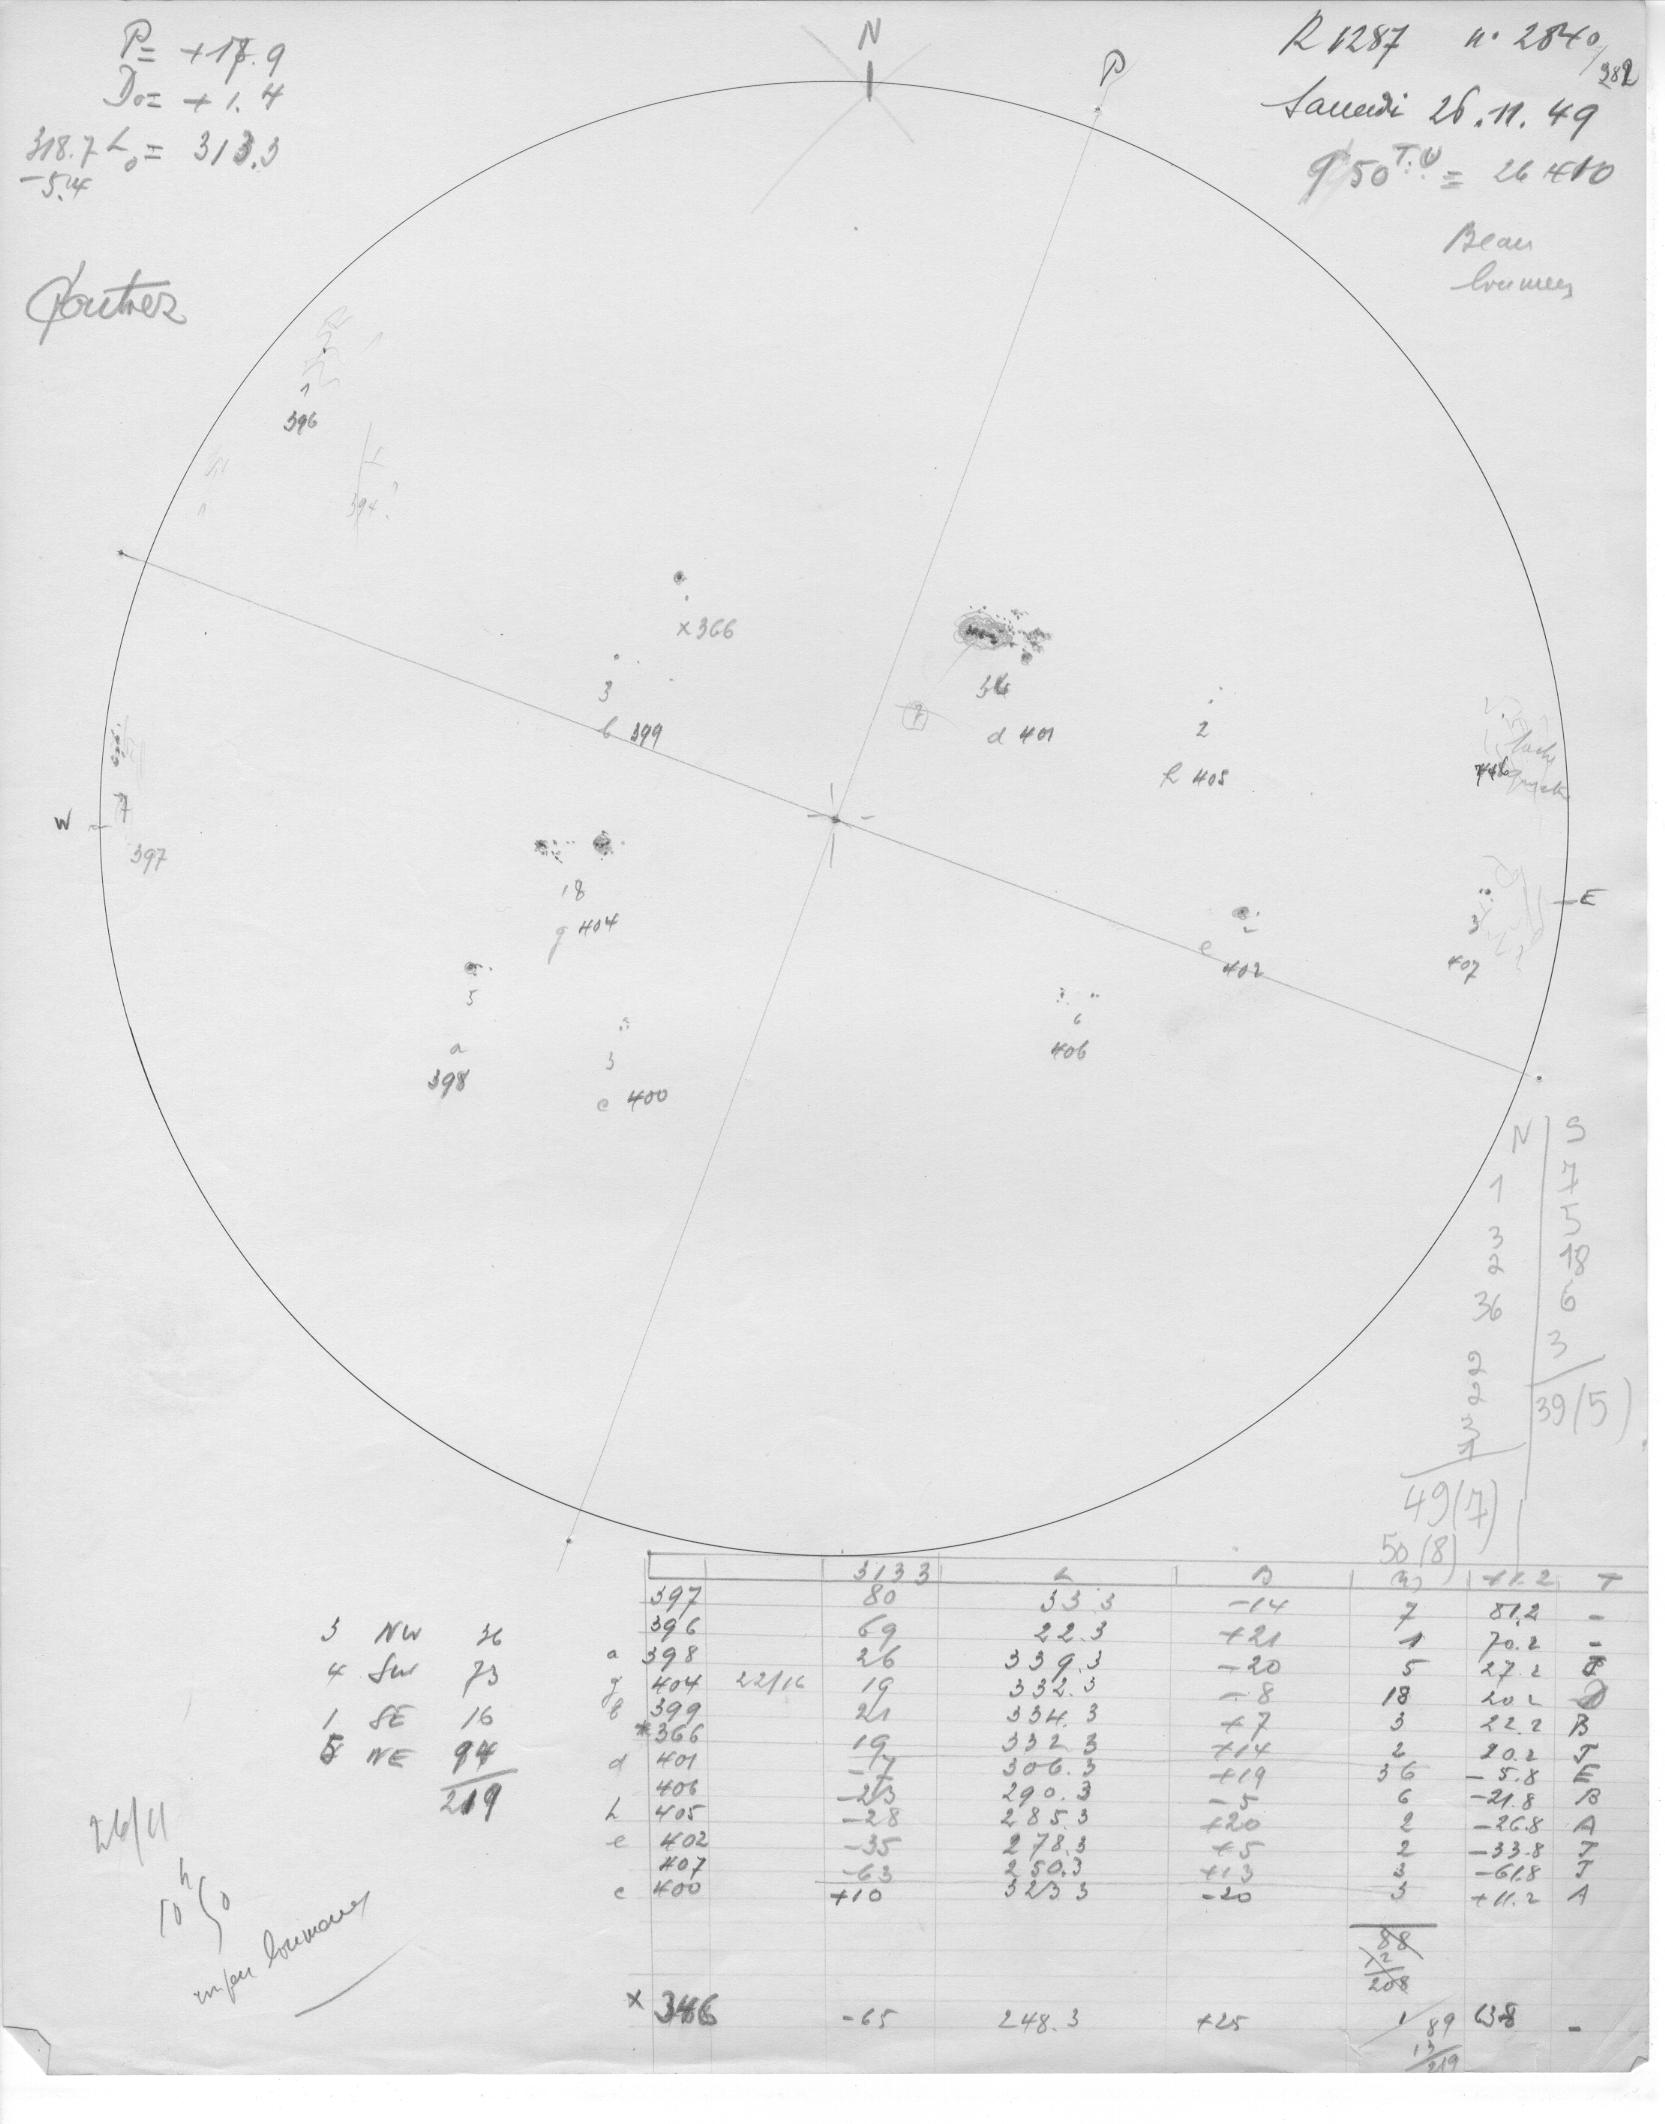 P= +17.9
D₀= +1.4
318.7 L₀= 313.3
-5.4
N
P
R 1287 n° 2840/382
Samedi 26.11.49
9h50 T.U = 26 410
Beau
brumeux
1
396
394?
×366
3
b 399
36
d 401
2
h 405
tache
7
W
397
18
g 404
5
a
398
3
c 400
e
2
402
6
406
3
407
E
N S
1 7
3 5
2 18
36 6
2 3
2 39(5)
3
1
49(7)
50(8)
3133 L B +1.2 T
397 80 33.3 -14 7 81.2 -
396 69 22.3 +21 1 70.2 -
a 398 26 339.3 -20 5 27.2 J
g 404 22/16 19 332.3 -8 18 20.2
b 399 21 334.3 +7 3 22.2 B
*366 19 332 3 +14 2 20.2 J
d 401 -7 306.3 +19 36 -5.8 E
406 -23 290.3 -5 6 -21.8 B
h 405 -28 285.3 +20 2 -26.8 A
e 402 -35 278.3 +5 2 -33.8 J
407 -63 250.3 +13 3 -61.8 J
c 400 +10 323 3 -20 3 +11.2 A
88
12
208
× 346 -65 248.3 +25 1 638 -
89
13
219
3 NW 36
4 SW 73
1 SE 16
5 NE 94
219
26/11
10h50
un peu brumeux